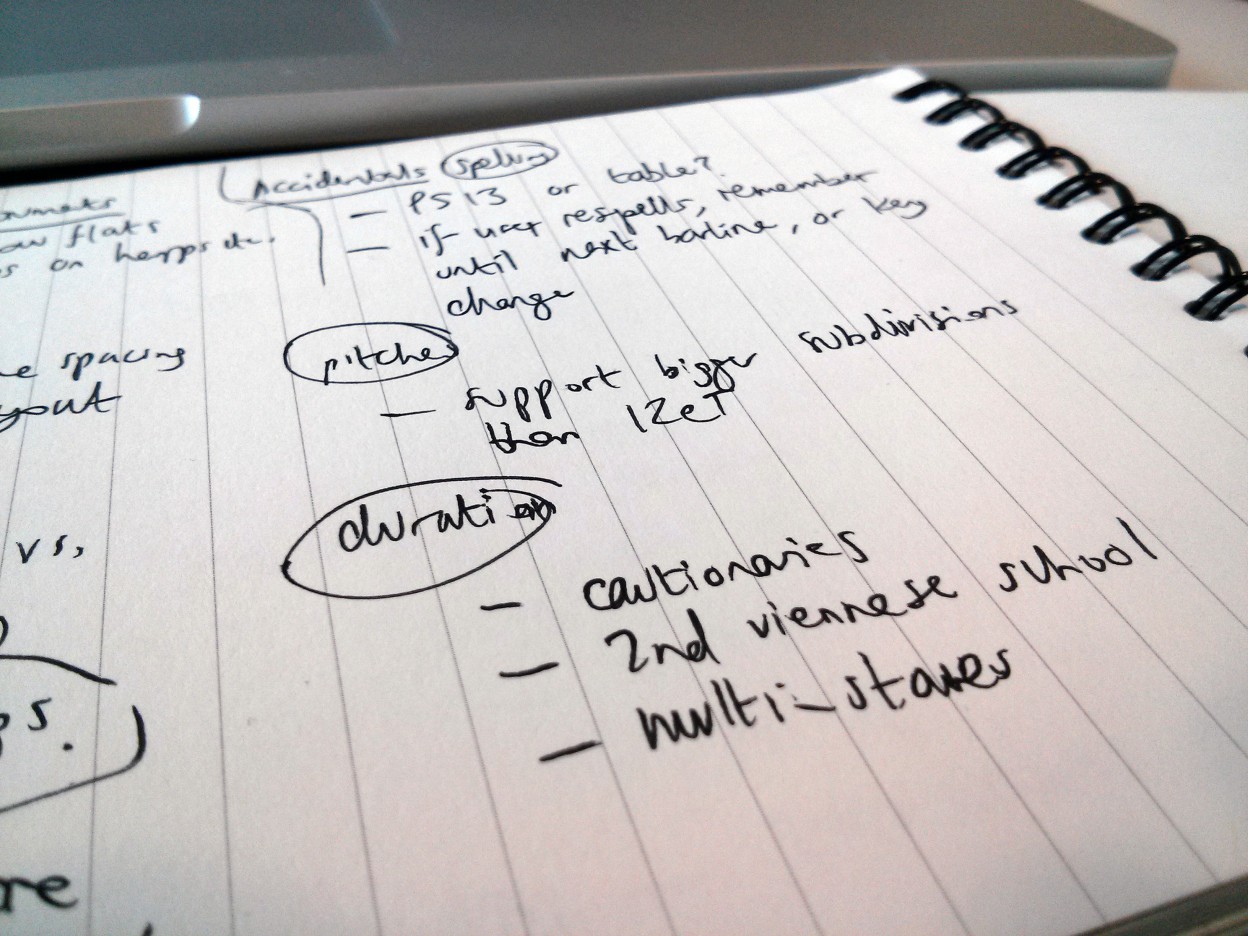 Accidentals spelling
— PS13 or table?
— if user respells, remember
until next barline, or key
change
pitches
— support bigger subdivisions
than 12ET
duration
— cautionaries
— 2nd viennese school
— multi-staves
ow flats
s on harps etc.
e spacing
yout
vs.
s.
re